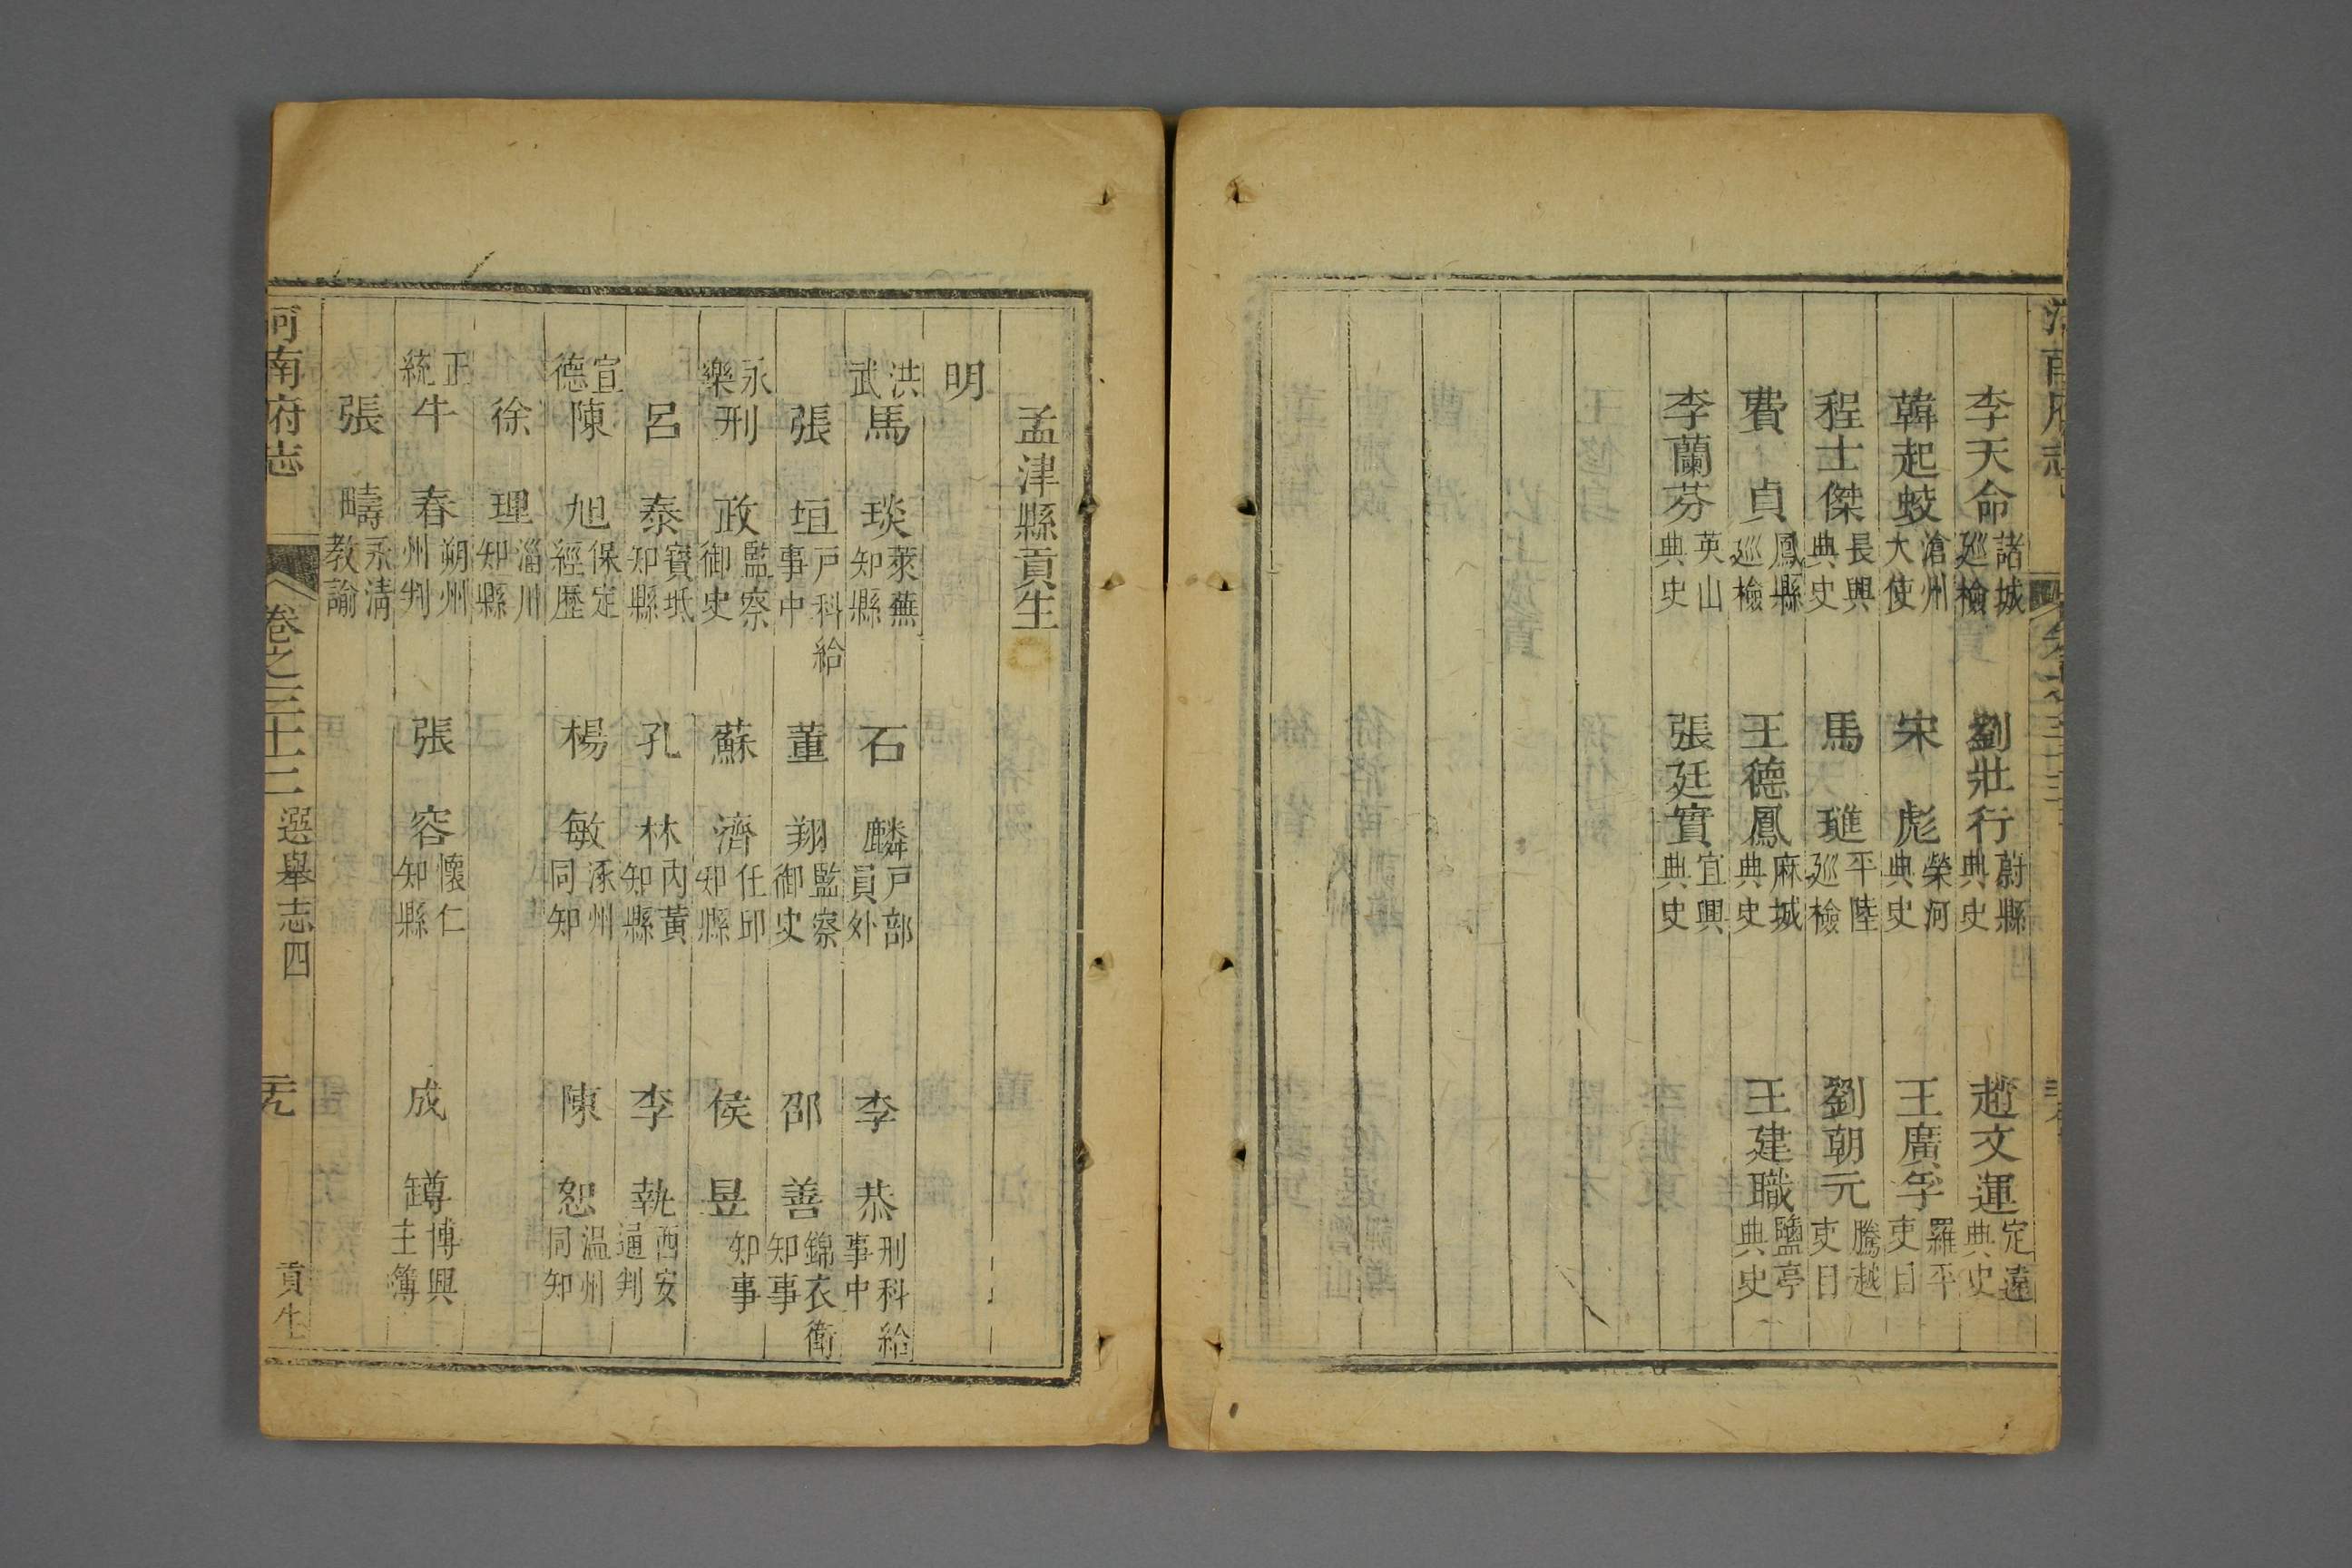 李天命 諸城巡檢 劉壯行 蔚縣典史 趙文運 定遠典史
韓起蛟 滄州大使 宋彪 榮河典史 王廣孚 羅平吏目
程士傑 長興典史 馬璡 平陸巡檢 劉朝元 騰越吏目
費貞 鳳縣巡檢 王德鳳 麻城典史 王建職 鹽亭典史
李蘭芬 英山典史 張廷實 宜興典史
孟津縣貢生
明
洪武 馬琰 萊蕪知縣 石麟 戶部員外 李恭 刑科給事中
張垣 戶科給事中 董翔 監察御史 邵善 錦衣衛知事
永樂 刑政 監察御史 蘇濟 任邱知縣 侯昱 知事
呂泰 寶坻知縣 孔林 內黃知縣 李執 西安通判
宣德 陳旭 保定經歷 楊敏 涿州同知 陳恕 温州同知
徐理 淄川知縣
正統 牛春 朔州州判 張容 懷仁知縣 成罇 博興主簿
張疇 永清教諭
河南府志 卷之三十三 選舉志四 元 貢生